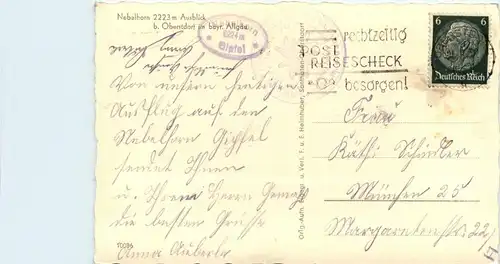 Nebelhorn 2223m Ausblick
b. Oberstdorf im bayr. Allgäu
Gipfel
rechtzeitig
POST
REISESCHECK
besorgen!
6 6
Deutsches Reich
Von unserem heutigen
Ausflug auf den
Nebelhorn Gipfel
sendet Ihnen
u. Ihrem Herrn Gemahl
die besten Grüße
Anna
Orig.-Aufn. u. Verl. F. u. E. Heimhuber, Sonthofen-Oberstdorf
Frau
Käthi Schindler
München 25
Margaretenstr. 22/